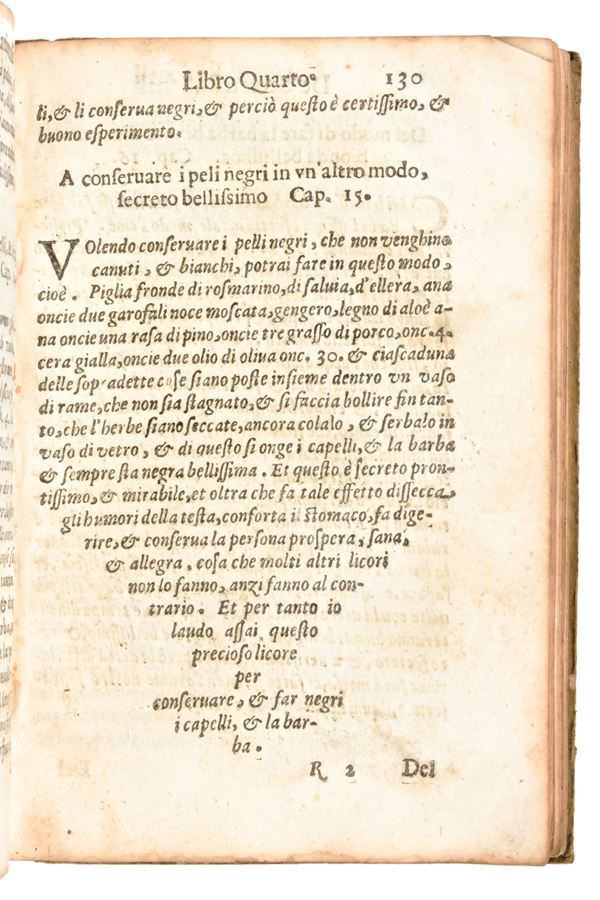 Libro Quarto. 130
li, & li conserua negri, & perciò questo è certissimo, &
buono esperimento.
A conseruare i peli negri in vn'altro modo,
secreto bellissimo Cap. 15.
VOlendo conseruare i pelli negri, che non venghino
canuti, & bianchi, potrai fare in questo modo,
cioè. Piglia fronde di rosmarino, di saluia, d'ellera, ana
oncie due garofali noce moscata, gengero, legno di aloè a-
na oncie una rasa di pino, oncie tre grasso di porco, onc. 4.
cera gialla, oncie due olio di oliua onc. 30. & ciascaduna
delle sopradette cose siano poste insieme dentro vn vaso
di rame, che non sia stagnato, & si faccia bollire fin tan-
to, che l'herbe siano seccate, ancora colalo, & serbalo in
vaso di vetro, & di questo si onge i capelli, & la barba
& sempre sta negra bellissima. Et questo è secreto pron-
tissimo, & mirabile, et oltra che fa tale effetto dissecca
gli humori della testa, conforta il stomaco, fa dige-
rire, & conserua la persona prospera, sana,
& allegra, cosa che molti altri licori
non lo fanno, anzi fanno al con-
trario. Et per tanto io
laudo assai questo
precioso licore
per
conseruare, & far negri
i capelli, & la bar-
ba.
R 2 Del